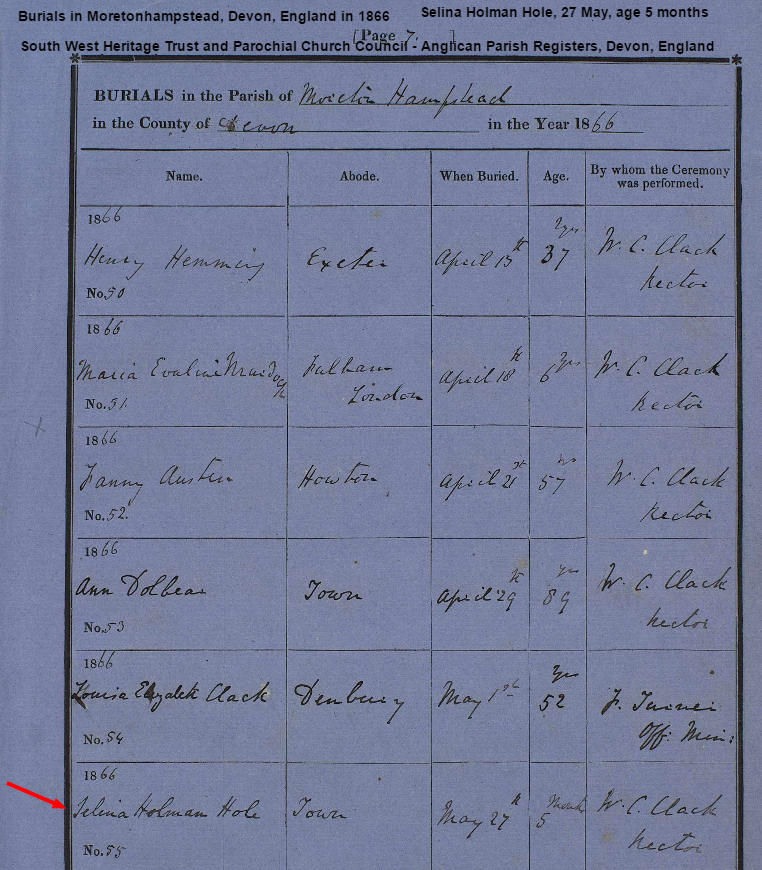 Burials in Moretonhampstead, Devon, England in 1866
Selina Holman Hole, 27 May, age 5 months
[Page 7. ]
South West Heritage Trust and Parochial Church Council - Anglican Parish Registers, Devon, England
BURIALS in the Parish of Moreton Hampstead
in the County of Devon in the Year 1866
Name. Abode. When Buried. Age. By whom the Ceremony was performed.
1866
Henry Hemming Exeter April 15th 37 yrs W. C. Clack Rector
No. 50
1866
Maria Evaline Fulham London April 18th 6 yrs W. C. Clack Rector
No. 51.
1866
Fanny Austen Howton April 21st 57 yrs W. C. Clack Rector
No. 52.
1866
Ann Dolbear Town April 29th 89 yrs W. C. Clack Rector
No. 53
1866
Louisa Elizabeth Clack Denbury May 1st 52 yrs F. Turner Off: Min:
No. 54
1866
Selina Holman Hole Town May 27th 5 Months W. C. Clack Rector
No. 55